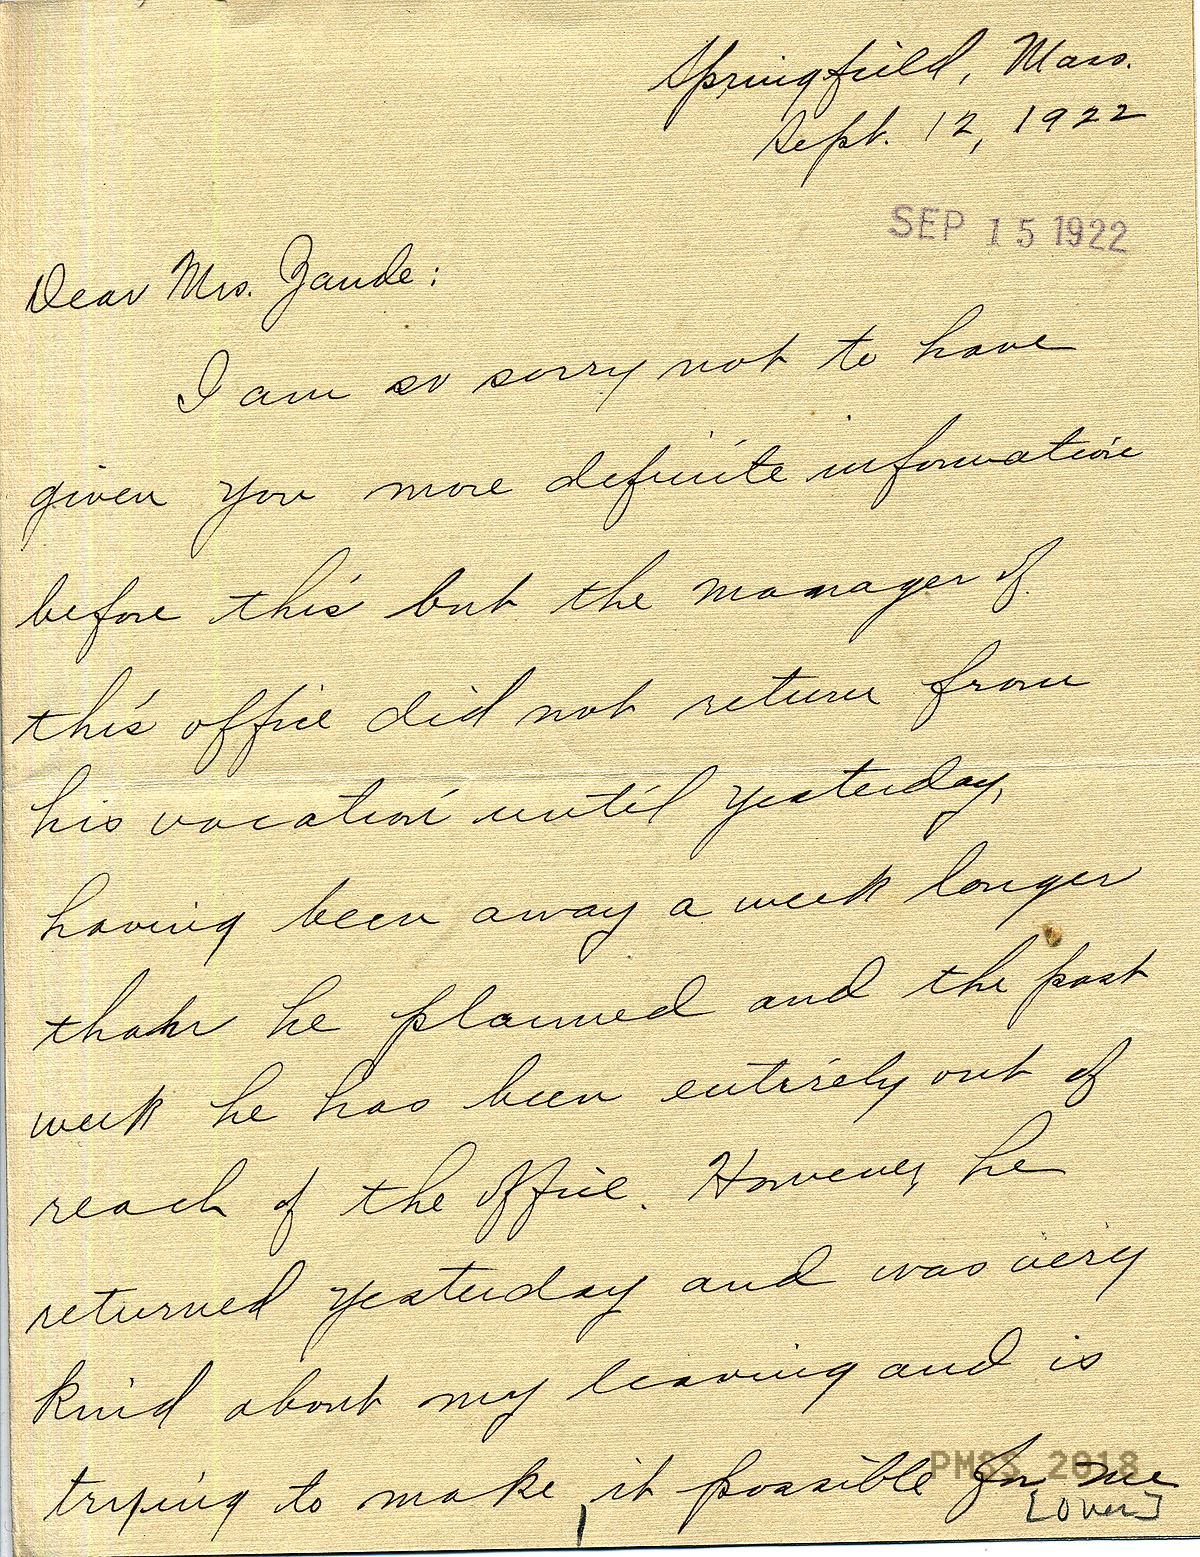 Springfield, Mass.
Sept. 12, 1922
SEP 15 1922
Dear Mrs. Zande:
I am so sorry not to have
given you more definite information
before this but the manager of
this office did not return from
his vacation until yesterday,
having been away a week longer
than he planned and the past
week he has been entirely out of
reach of the office. However, he
returned yesterday and was very
kind about my leaving and is
trying to make it possible for me
PMSS 2018
[over]
1